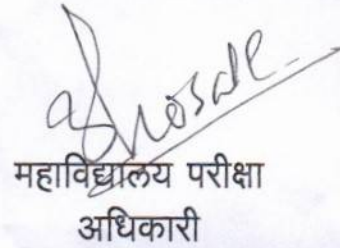 महाविद्यालय परीक्षा
अधिकारी